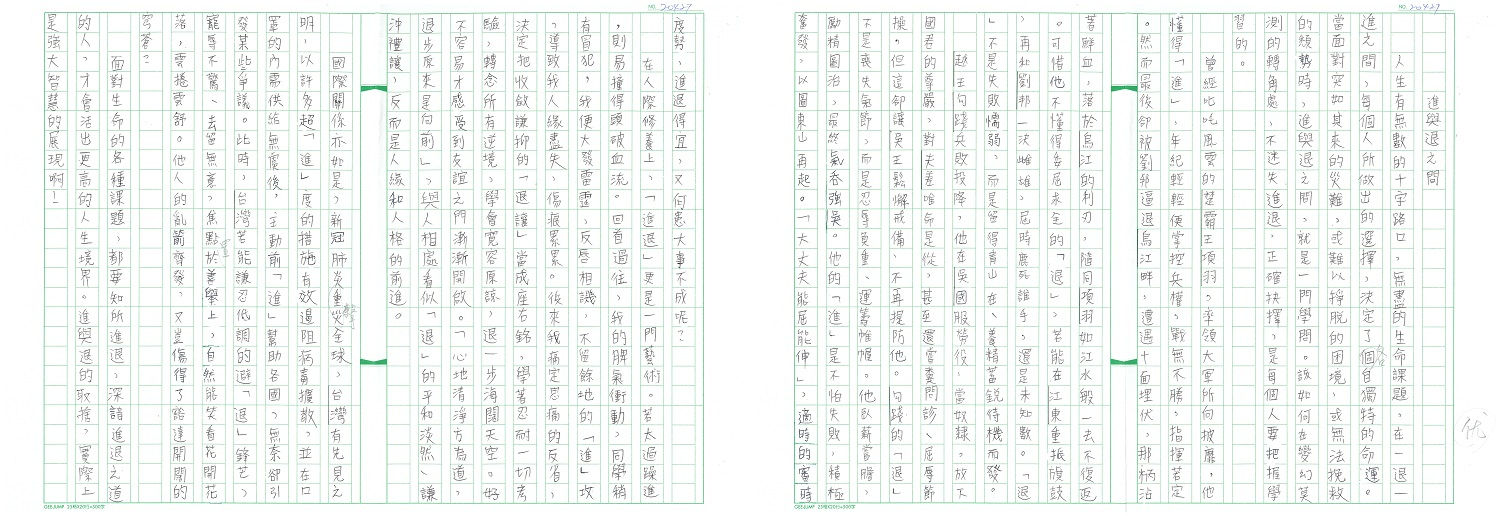 NO. 20427
進與退之間
人生有無數的十字路口，無盡的生命課題，在一退一
進之間，每個人所做出的選擇，決定了個自獨特的命運。
各
當面對突如其來的災難，或難以掙脫的困境，或無法挽救
的頹勢時，進與退之間，就是一門學問。該如何在變幻莫
測的轉角處，不迷失進退，正確抉擇，是每個人要把握學
習的。
曾經叱吒風雲的楚霸王項羽，率領大軍所向披靡，他
懂得「進」，年紀輕輕便掌控兵權，戰無不勝，指揮若定
。然而最後卻被劉邦逼退烏江畔，遭遇十面埋伏，那柄沾
苦鮮血，落於烏江的利刃，隨同項羽如江水般一去不復返
。可惜他不懂得委屈求全的「退」，若能在江東重振旗鼓
，再和劉邦一決雌雄，屆時鹿死誰手，還是未知數。「退
」不是失敗懦弱，而是留得青山在、養精蓄銳待機而發。
越王句踐兵敗投降，他在吳國服勞役，當奴隸，放下
國君的尊嚴，對夫差唯命是從，甚至還嘗糞問診、屈辱節
操。但這卻讓吳王鬆懈戒備，不再提防他。句踐的「退」
不是喪失氣節，而是忍辱負重、運籌帷幄。他臥薪嘗膽，
勵精圖治，最終氣吞強吳。他的「進」是不怕失敗，積極
奮發，以圖東山再起。「大丈夫能屈能伸」，適時的審時
優
NO. 20427
度勢，進退得宜，又何患大事不成呢？
在人際修養上，「進退」更是一門藝術。若太過躁進
，則易撞得頭破血流。回首過往，我的脾氣衝動，同學稍
有冒犯，我便大發雷霆，反唇相譏，不留餘地的「進」攻
，導致我人緣盡失，傷痕累累。後來我痛定思痛的反省，
決定把收斂謙抑的「退讓」當成座右銘，學著忍耐一切考
驗，轉念所有逆境，學會寬容原諒，退一步海闊天空。好
不容易才感受到友誼之門漸漸開啟。「心地清淨方為道，
退步原來是向前」，與人相處看似「退」的平和淡然、謙
沖禮讓，反而是人緣和人格的前進。
國際關係亦如是，新冠肺炎重災全球，台灣有先見之
明，以許多超「進」度的措施有效遏阻病毒擴散，並在口
罩的內需供給無虞後，主動前「進」幫助各國，無奈卻引
發某些爭議。此時，台灣若能謙忍低調的避「退」鋒芒，
寵辱不驚、去留無意，焦點於善舉上，自然能笑看花開花
落，雲捲雲舒。他人的亂箭齊發，又豈傷得了豁達開闊的
穹蒼？
面對生命的各種課題，都要知所進退，深諳進退之道
的人，才會活出更高的人生境界。進與退的取捨，實際上
是強大智慧的展現啊！